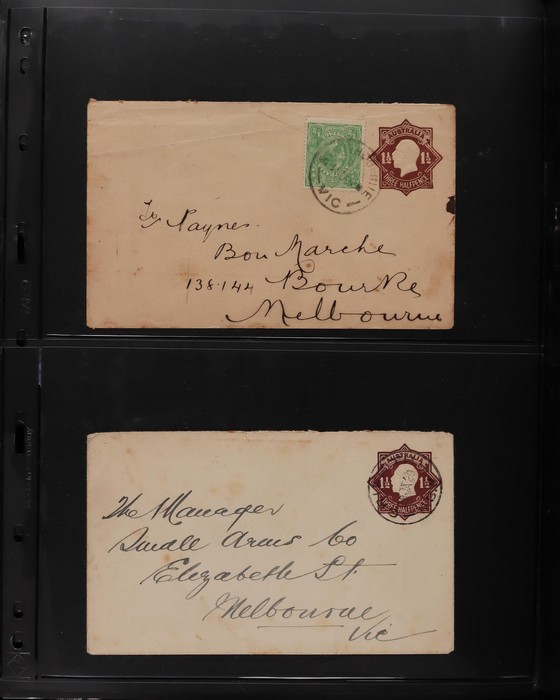 AUSTRALIA
1½ 1½
THREE HALFPENCE
VIC
Paynes.
Bon Marche
138.144 Bourke
Melbourne
AUSTRALIA
1½ 1½
THREE HALFPENCE
The Manager
Small Arms Co
Elizabeth St
Melbourne
Vic